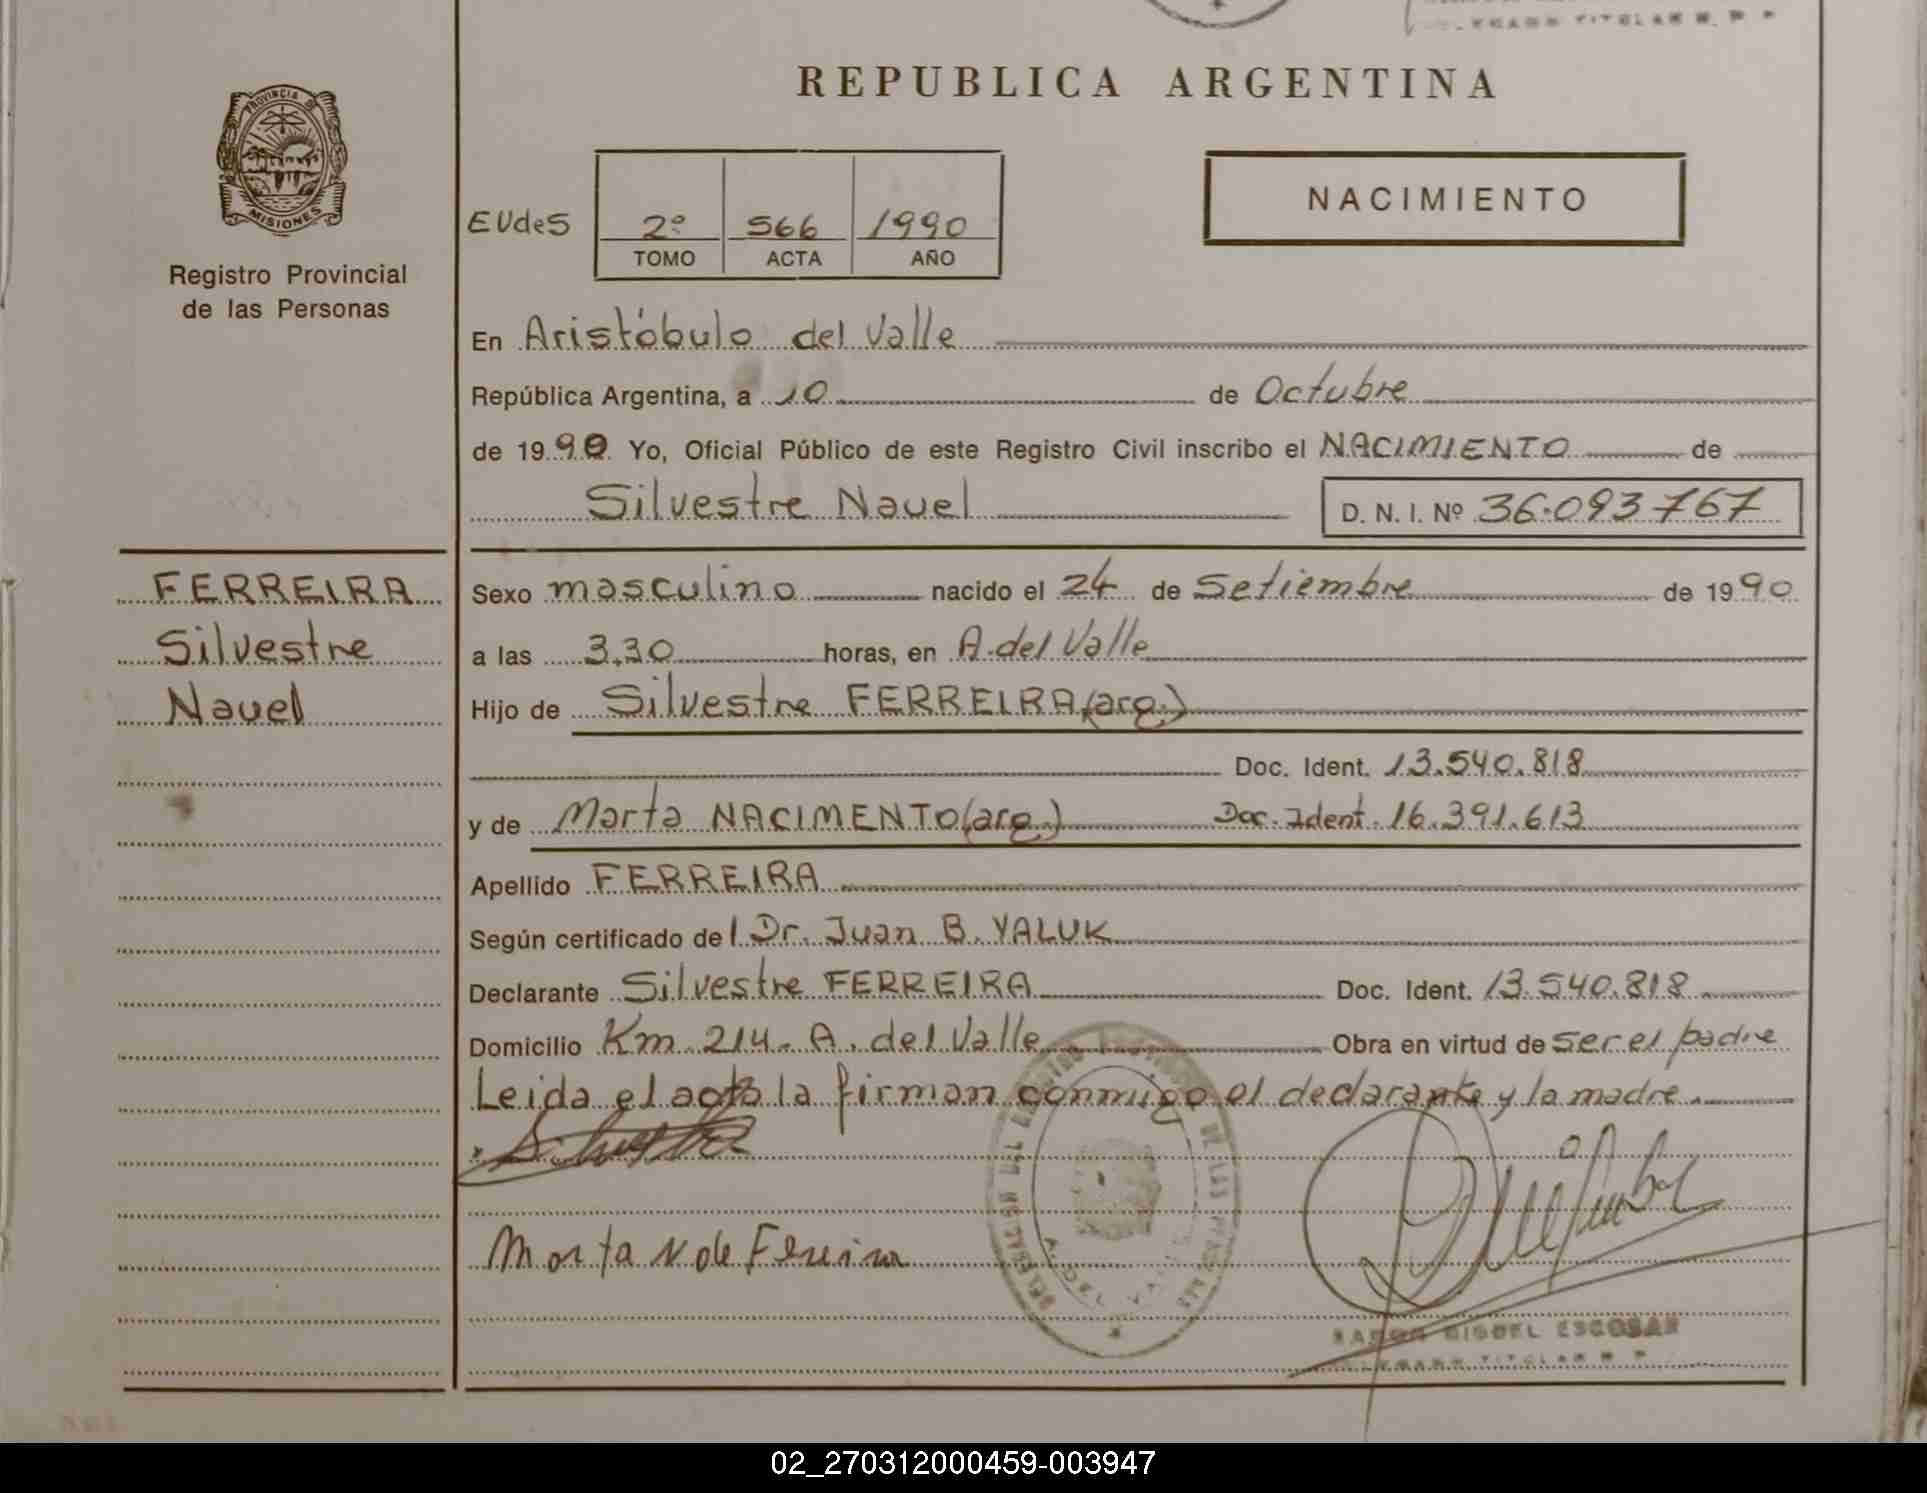 REPUBLICA ARGENTINA
PROVINCIA DE
MISIONES
Registro Provincial
de las Personas
NACIMIENTO
EVdeS 2º 566 1990
TOMO ACTA AÑO
En Aristóbulo del Valle
República Argentina, a 10 de Octubre
de 1990 Yo, Oficial Público de este Registro Civil inscribo el NACIMIENTO de
Silvestre Nauel D. N. I. Nº 36.093.767
FERREIRA
Silvestre
Nauel
Sexo masculino nacido el 24 de Setiembre de 1990
a las 3.30 horas, en A. del Valle
Hijo de Silvestre FERREIRA (arg.)
Doc. Ident. 13.540.818
y de Marta NACIMENTO (arg.) Doc. Ident. 16.391.613
Apellido FERREIRA
Según certificado del Dr. Juan B. YALUK
Declarante Silvestre FERREIRA Doc. Ident. 13.540.818
Domicilio Km. 214. A. del Valle Obra en virtud de ser el padre
Leida el acta la firman conmigo el declarante y la madre.
Silvestre
Marta N de Ferreira
MIGUEL ESCOBAR
TITULAR
02_270312000459-003947